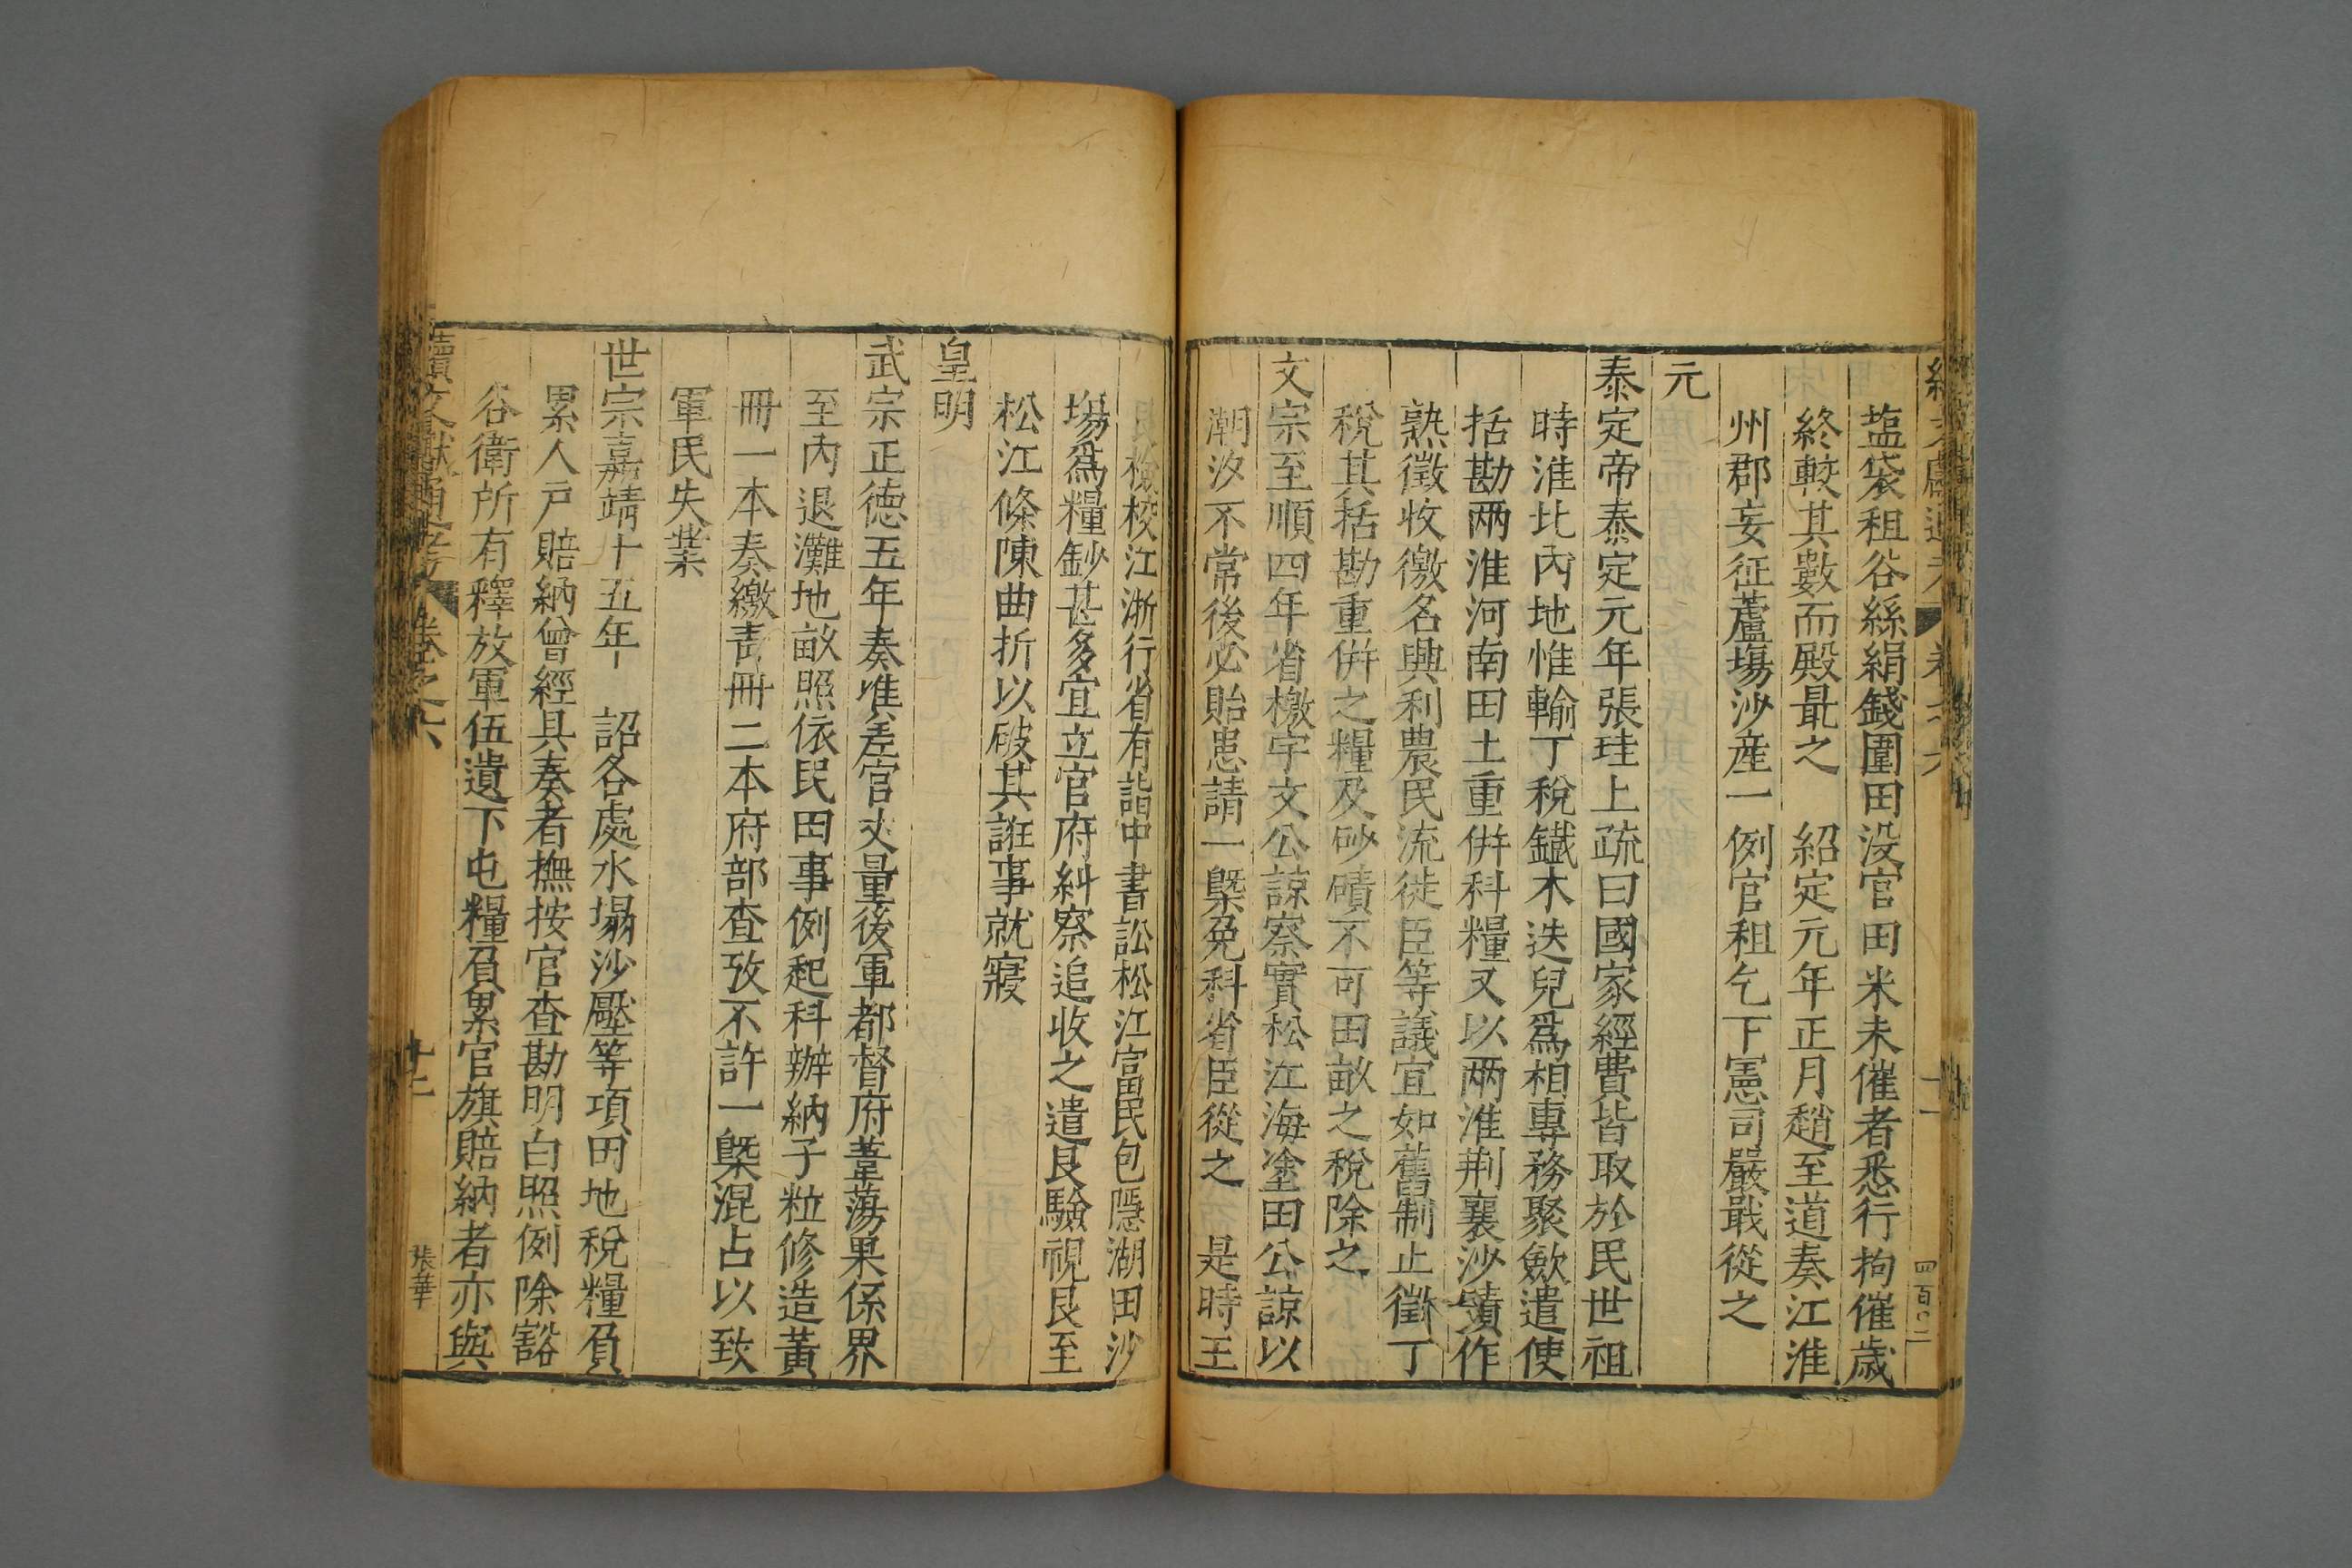 塩袋租谷絲絹錢圍田没官田米未催者悉行拘催歲
終較其數而殿最之　紹定元年正月趙至道奏江淮
州郡妄征蘆塲沙産一例官租乞下憲司嚴戢從之
元
泰定帝泰定元年張珪上疏曰國家經費皆取於民世祖
時淮北内地惟輸丁稅鐡木迭兒爲相專務聚歛遣使
括勘兩淮河南田土重併科糧又以兩淮荆襄沙磧作
熟徵收徼名興利農民流徙臣等議宜如舊制止徵丁
稅其括勘重併之糧及砂磧不可田畝之稅除之
文宗至順四年省檄宇文公諒察實松江海塗田公諒以
潮汐不常後必貽患請一槩免科省臣從之　是時王
艮檢校江浙行省有詣中書訟松江富民包隱湖田沙
塲爲糧鈔甚多宜立官府糾察追收之遣艮驗視艮至
松江條陳曲折以破其誑事就寢
皇明
武宗正德五年奏准差官丈量後軍都督府葦蕩果係界
至内退灘地畝照依民田事例起科辦納子粒修造黃
冊一本奏繳靑冊二本府部查攷不許一槩混占以致
軍民失業
世宗嘉靖十五年　詔各處水塌沙壓等項田地稅糧負
累人戸賠納曾經具奏者撫按官查勘明白照例除豁
各衛所有釋放軍伍遺下屯糧負累官旗賠納者亦與
續文獻通考　卷之六　十二　張華